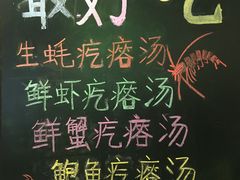 最好吃
生蚝疙瘩汤
鲜虾疙瘩汤
鲜蟹疙瘩汤
鲍鱼疙瘩汤